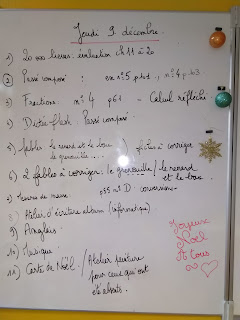 Jeudi 9 décembre.
1) 20 000 lieues : évaluation ch 11 à 20
2) Passé composé : ex n°5 p 161, n°4 p 63
3) Fractions : n° 4 p 61 - Calcul réfléchi
4) Dictée flash : Passé composé.
5) fables le renard et le bouc / à corriger
la grenouille...
6) 2 fables à corriger : la grenouille / le renard
et le bouc.
7) Mesures de masse n°1 - conversion
8) Atelier d'écriture album (informatique).
9) Anglais
10) Musique
11) Carte de Noël / Atelier peinture
pour ceux qui ont
été absents.
Joyeux
Noël
à tous